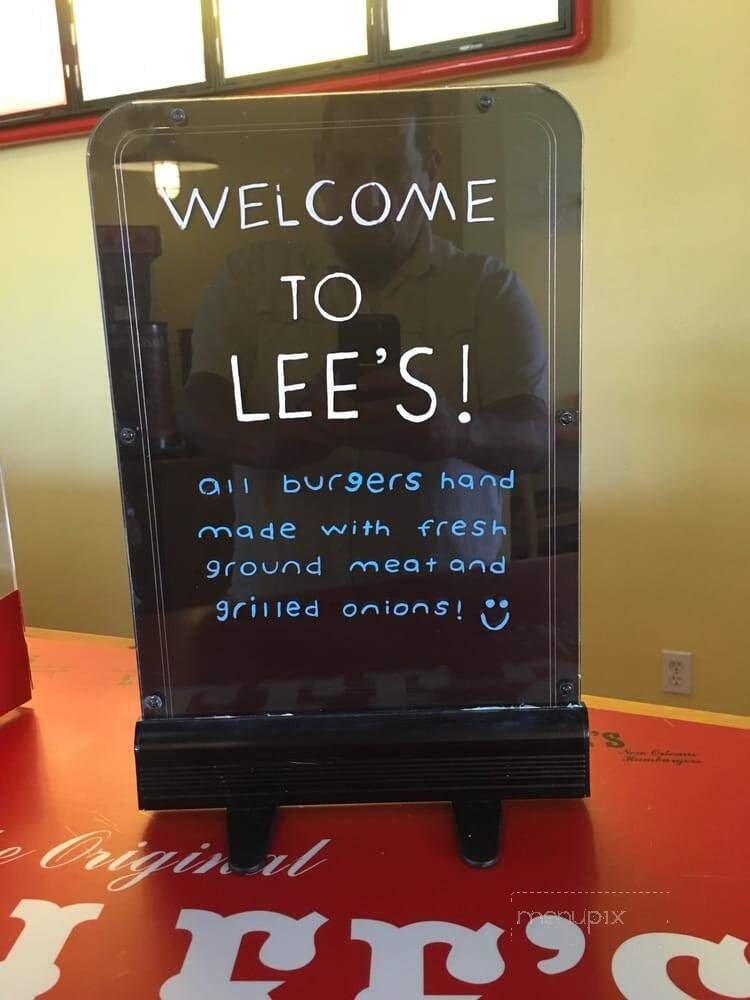 WELCOME
TO
LEE'S!
all burgers hand
made with fresh
ground meat and
grilled onions!
New Orleans
Hamburgers
Original
LEE'S
menupix